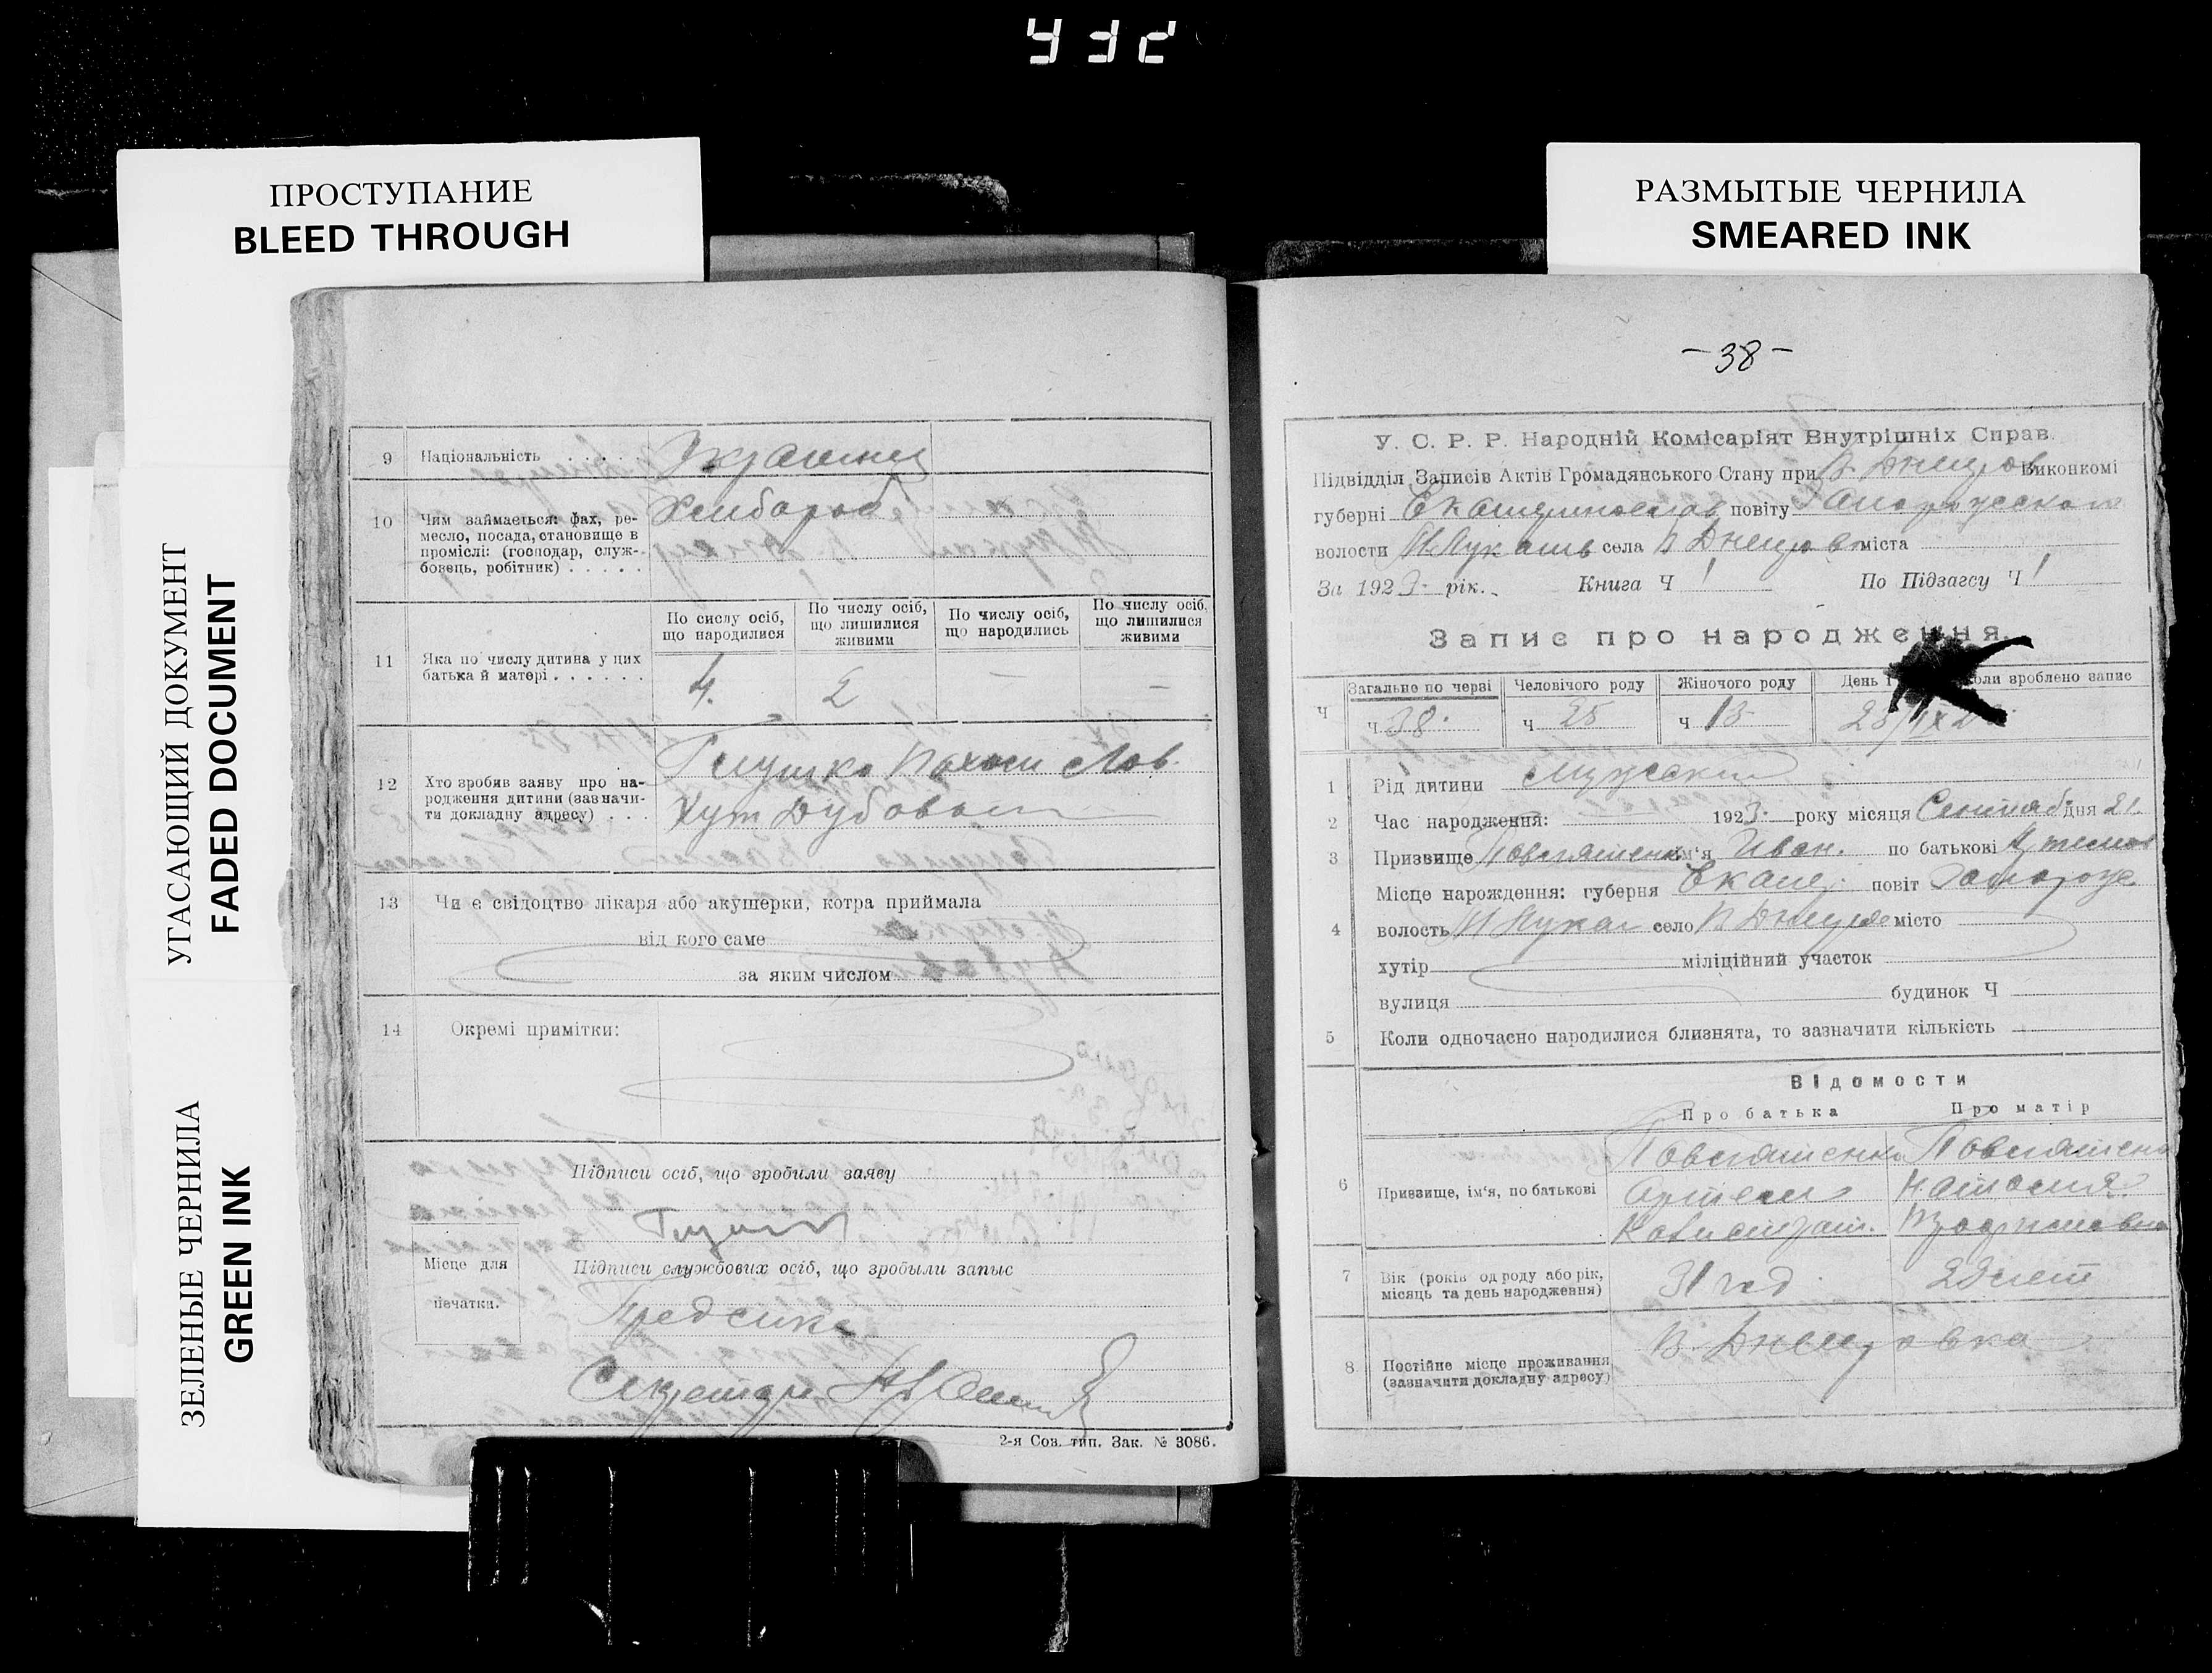 432
ПРОСТУПАНИЕ
BLEED THROUGH
РАЗМЫТЫЕ ЧЕРНИЛА
SMEARED INK
УГАСАЮЩИЙ ДОКУМЕНТ
FADED DOCUMENT
ЗЕЛЕНЫЕ ЧЕРНИЛА
GREEN INK
9 Національність . . . . .
10 Чим займається: фах, ре-
месло, посада, становище в
промислі: (господар, служ-
бовець, робітник) . . . . .
Хлебороб
11 Яка по числу дитина у цих
батька й матері . . . . . .
По сислу осіб,
що народилися
По числу осіб,
що лишилися
живими
По числу осіб,
що народились
По числу осіб,
що лишилися
живими
4. 2 — —
12 Хто зробив заяву про на-
родження дитини (зазначи-
ти докладну адресу) . . .
Глушко
Хут Дубовый
13 Чи є свідоцтво лікаря або акушерки, котра приймала
від кого саме
за яким числом
14 Окремі примітки:
Підписи осіб, що зробили заяву
Місце для
печатки.
Підписи службових осіб, що зробыли запыс
Секретарь
2-я Сов. тип. Зак. № 3086.
—38—
У. С. Р. Р. Народній Комісаріят Внутрішніх Справ.
Підвідділ Записів Актів Громадянського Стану при В. Днепров Виконкомі
губерні Екатеринослав повіту Запорожского
волости села В Днепровк міста
За 1923 рік. Книга Ч 1 По Підзагсу Ч 1
Запис про народження.
Загальне по черзі Человічого роду Жіночого роду День і коли зроблено запис
Ч ч 38. ч 25 ч 13
1 Рід дитини Мужский
2 Час народження: 1923 року місяця Сентяб дня 21
3 Призвище ім'я Иван. по батькові Артемов
Місце нарождення: губерня Екате. повіт Запорож.
4 волость село В Днепров місто
хутір міліційний участок
вулиця будинок Ч
5 Коли одночасно народилися близнята, то зазначити кількість
Відомости
Про батька Про матір
6 Призвище, ім'я, по батькові
Артем
7 Вік (років од роду або рік,
місяць та день народження)
31 год 22 лет
8 Постійне місце проживання
(зазначити докладну адресу)
В. Днепровка